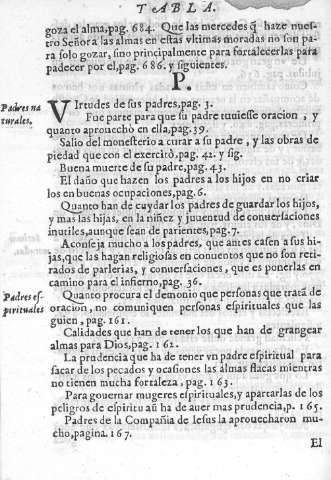 TABLA.
goza el alma, pag. 684. Que las mercedes q̃ haze nues-
tro Señora las almas en estas vltimas moradas no son pa-
ra solo gozar, sino principalmente para fortalecerlas para
padecer por el, pag. 686. y siguientes.
P.
Padres na
turales.
VIrtudes de sus padres, pag. 3.
Fue parte para que su padre tuuiesse oracion, y
quanto aprouecho en ella, pag. 39.
Salio del monesterio a curar a su padre, y las obras de
piedad que con el exercitò, pag. 42. y sig.
Buena muerte de su padre, 43.
El daño que hazen los padres a los hijos en no criar
los en buenas ocupaciones, pag. 6.
Quanto han de cuydar los padres de guardar los hijos,
y mas las hijas, en la niñez y juuentud de conuersaciones
inutiles, aunque sean de parientes, pag. 7.
Aconseja mucho a los padres, que antes casen a sus hi-
jas, que las hagan religiosas en conuentos que no son reti-
rados de parlerias, y conuersaciones, que es ponerlas en
camino para el infierno, pag. 36.
Padres es-
pirituales
Quanto procura el demonio que personas que tratã de
oracion, no comuniquen personas espirituales que las
guien, pag. 161.
Calidades que han de tener los que han de grangear
almas para Dios, pag. 162.
La prudencia que ha de tener vn padre espiritual para
sacar de los pecados y ocasiones las almas flacas mientras
no tienen mucha fortaleza, pag. 163.
Para gouernar mugeres espirituales, y apartarlas de los
peligros de espiritu aũ ha de auer mas prudencia, p. 165.
Padres de la Compañia de Iesus la aprouecharon mu-
cho, pagina. 167.
El